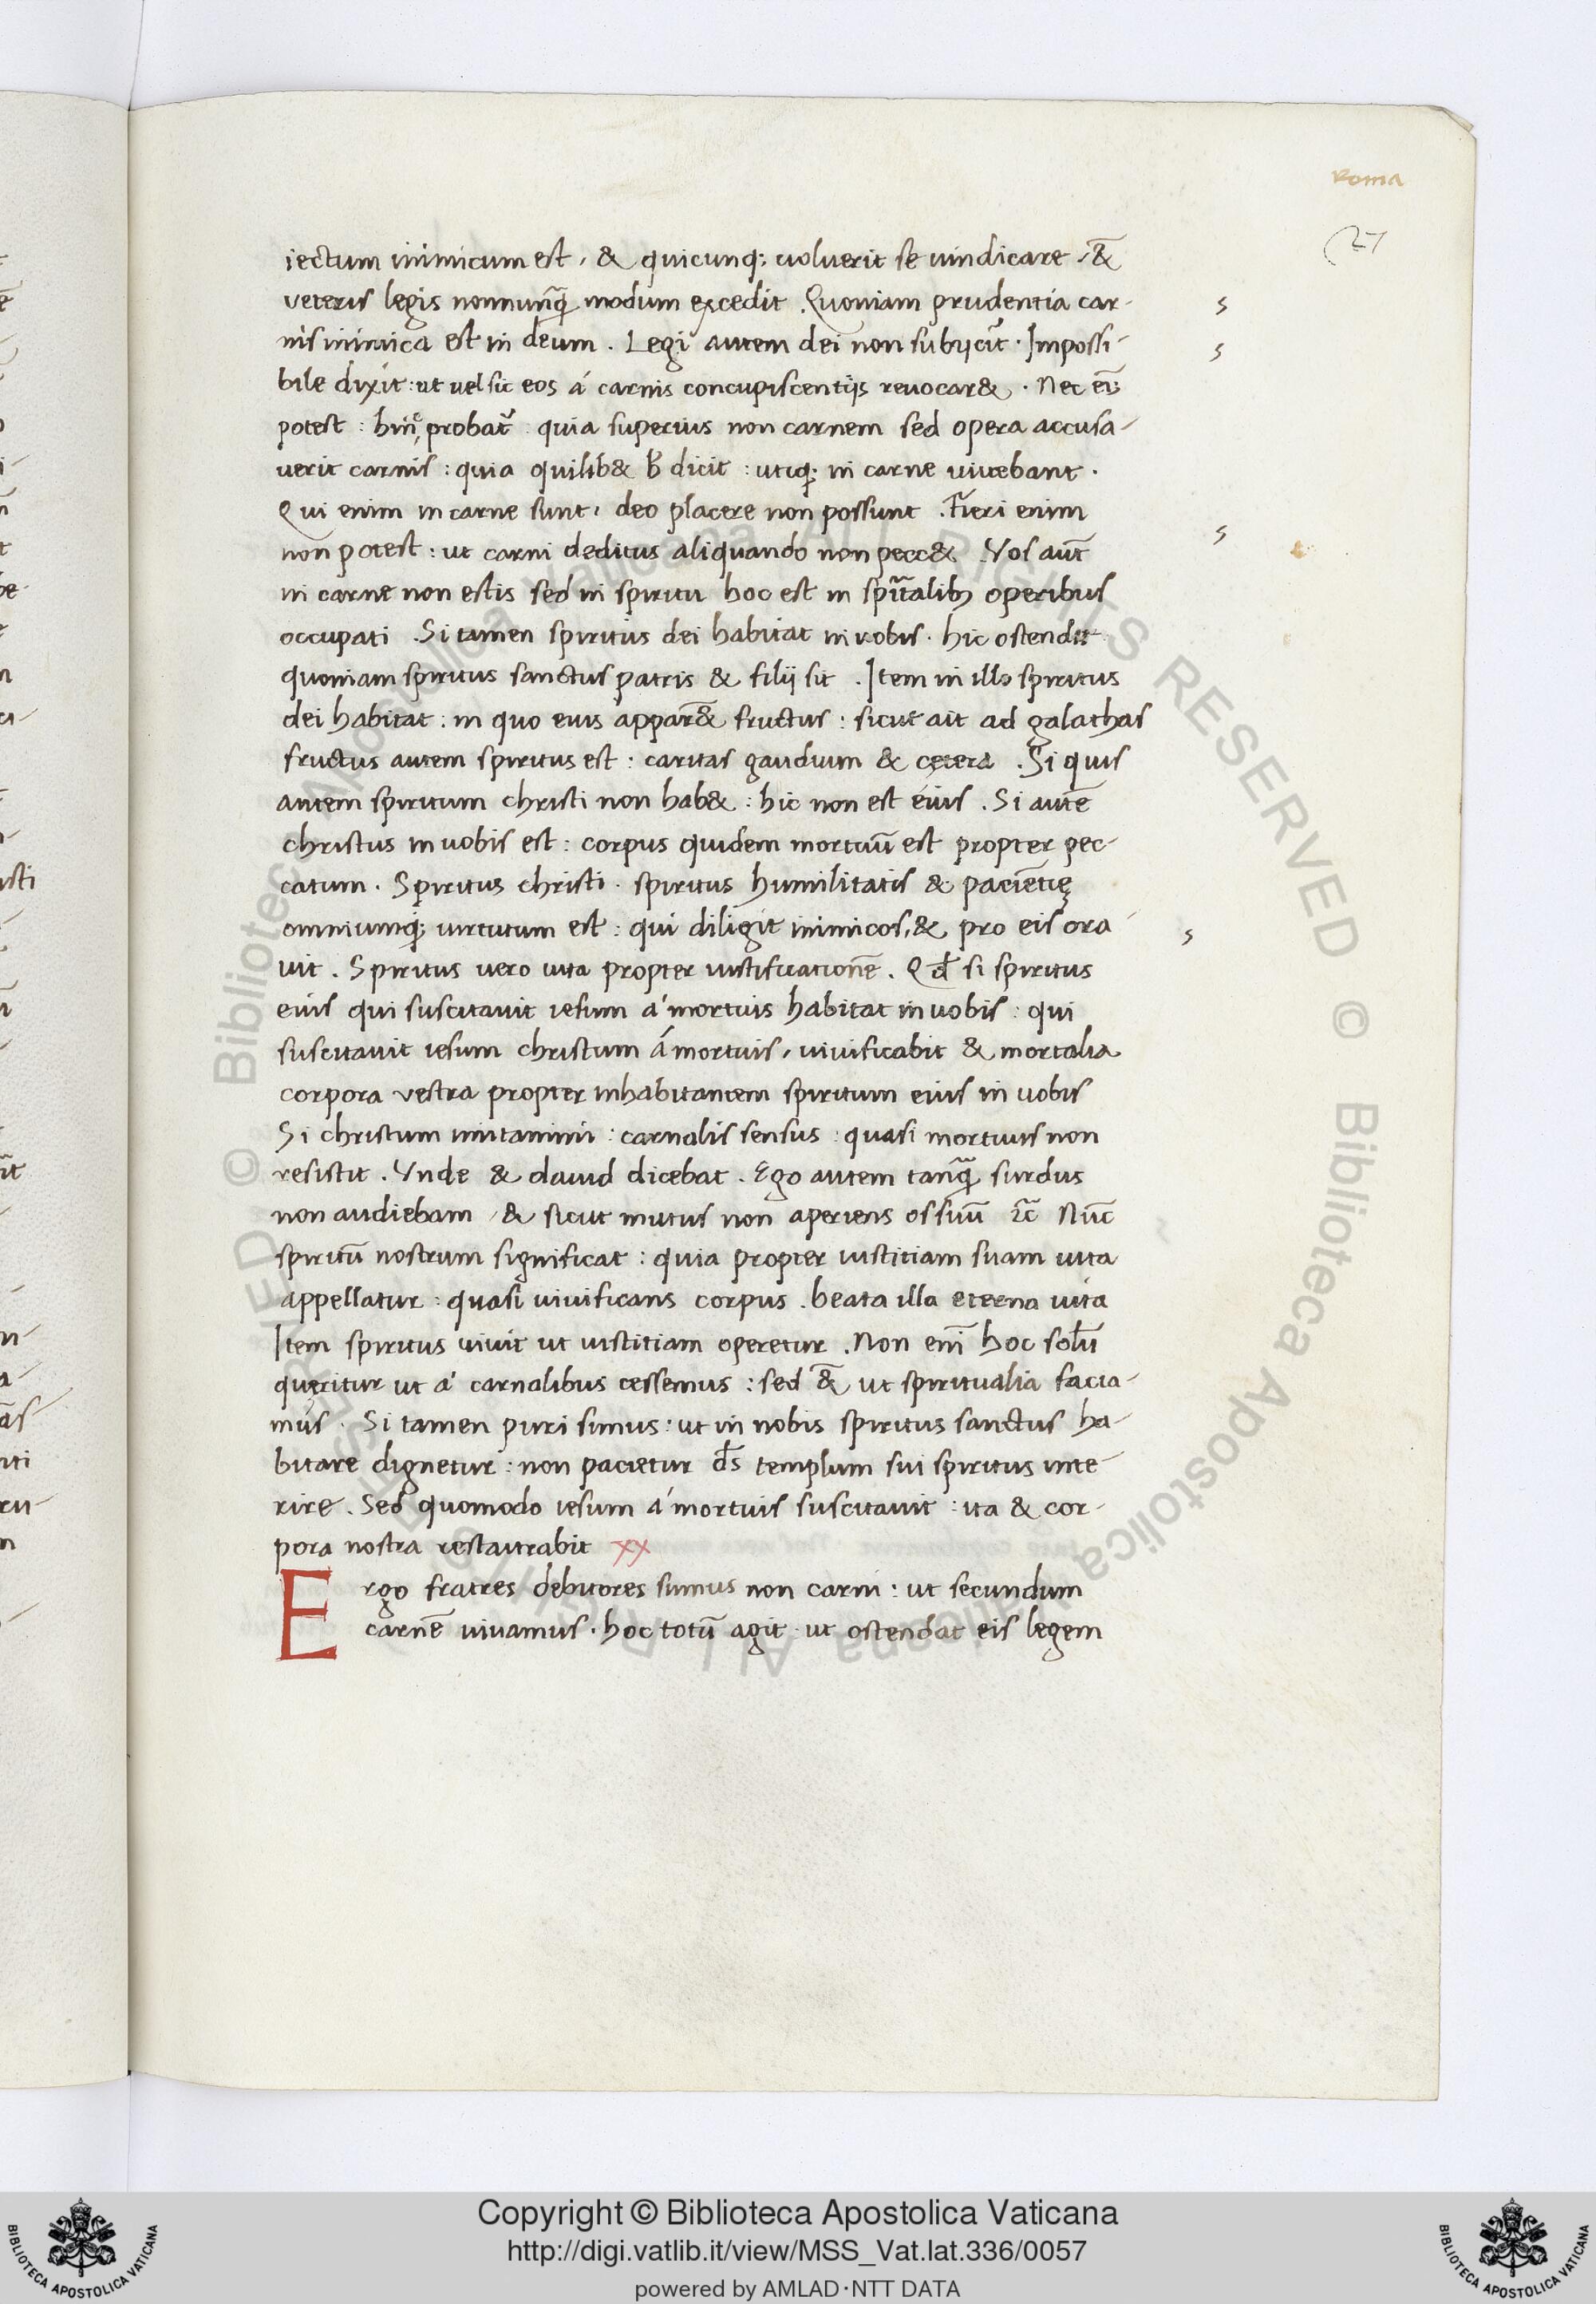 Roma
27
iectum inimicum est, & quicunq; uoluerit se uindicare, &̄
veteris legis nonnunq̄ modum excedit. Quoniam prudentia car-
nis inimica est in deum. Legi autem dei non subijcit̄. Impossi-
bile dixit: ut vel sic eos á carnis concupiscentijs reuocar&. Nec ei;
potest: hinc probat̄ quia superius non carnem sed opera accusa-
uerit carnis: quia quilib& dicit: utiq; in carne viuebant.
Qui enim in carne sunt, deo placere non possunt. Fieri enim
non potest: ut carni deditus aliquando non pecc&. Vos aut̄
in carne non estis sed in spiritu hoc est in sp̄italib; operibus
occupati. Si tamen spiritus dei habitat in vobis. hic ostendit
quoniam spiritus sanctus patris & filij sit. Item in illo spiritus
dei habitat: in quo euis appar& fructus: sicut ait ad galathas
fructus autem spiritus est: caritas gaudium & cętera. Si quis
autem spiritum christi non hab&: hic non est eius. Si autē
christus in uobis est: corpus quidem mortuū est propter pec-
catum. Spiritus christi. spiritus humilitatis & pacientię
omniumq; uirtutum est: qui diligit inimicos, & pro eis ora-
uit. Spiritus uero uita propter iustificationē. Qd̄ si spiritus
eius qui suscitauit iesum á mortuis habitat in uobis: qui
suscitauit iesum christum á mortuis, uiuificabit & mortalia
corpora vestra propter inhabitantem spiritum eius in uobis
Si christum imitamini: carnalis sensus: quasi mortuus non
resistit. Vnde & dauid dicebat. Ego autem tanq̄ surdus
non audiebam, & sicut mutus non aperiens os suū &c̄ Nūc
spiritū nostrum significat: quia propter iustitiam suam uita
appellatur: quasi uiuificans corpus. beata illa eterna uita
Item spiritus uiuit ut iustitiam operetur. Non eni̅ hoc solū
quęritur ut á carnalibus cessemus: sed &̄ ut spiritualia facia-
mus. Si tamen puri simus: ut in nobis spiritus sanctus ha-
bitare dignetur: non pacietur ds̄ templum sui spiritus inte-
rire. Sed quomodo iesum á mortuis suscitauit: ita & cor-
pora nostra restaurabit XX
Ergo fratres debitores sumus non carni: ut secundum
carnē uiuamus. hoc totū agit ut ostendat eis legem
Copyright © Biblioteca Apostolica Vaticana
http://digi.vatlib.it/view/MSS_Vat.lat.336/0057
powered by AMLAD·NTT DATA